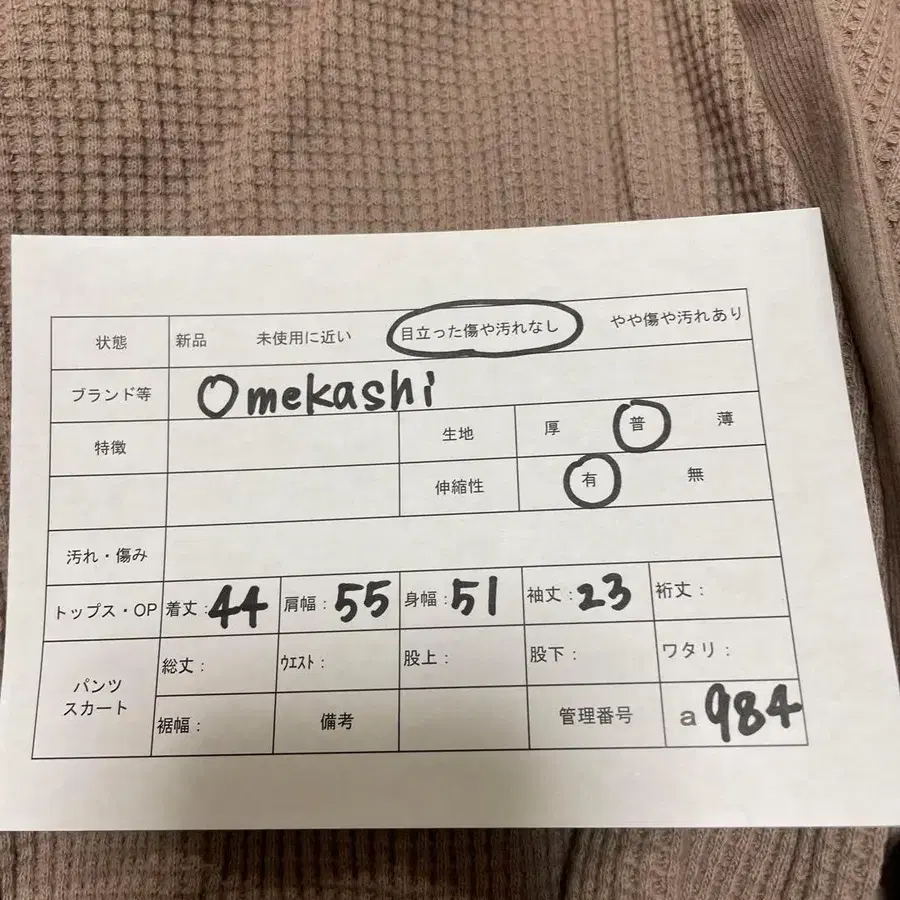 状態 新品 未使用に近い 目立った傷や汚れなし やや傷や汚れあり
ブランド等 Omekashi
特徴 生地 厚 普 薄
伸縮性 有 無
汚れ・傷み
トップス・OP 着丈:44 肩幅:55 身幅:51 袖丈:23 裄丈:
パンツ
スカート
総丈: ウエスト: 股上: 股下: ワタリ:
裾幅: 備考 管理番号 a984